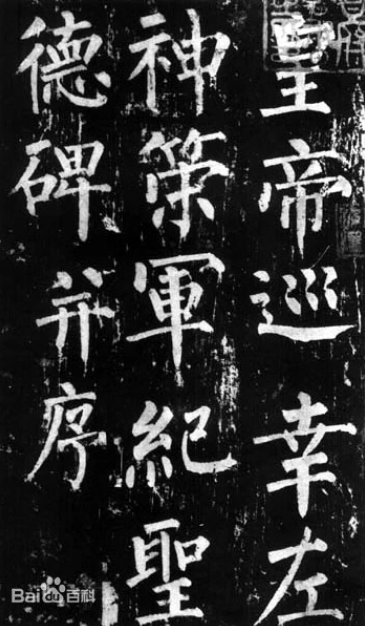 皇帝巡幸左
神策軍紀聖
德碑并序
Bai百科